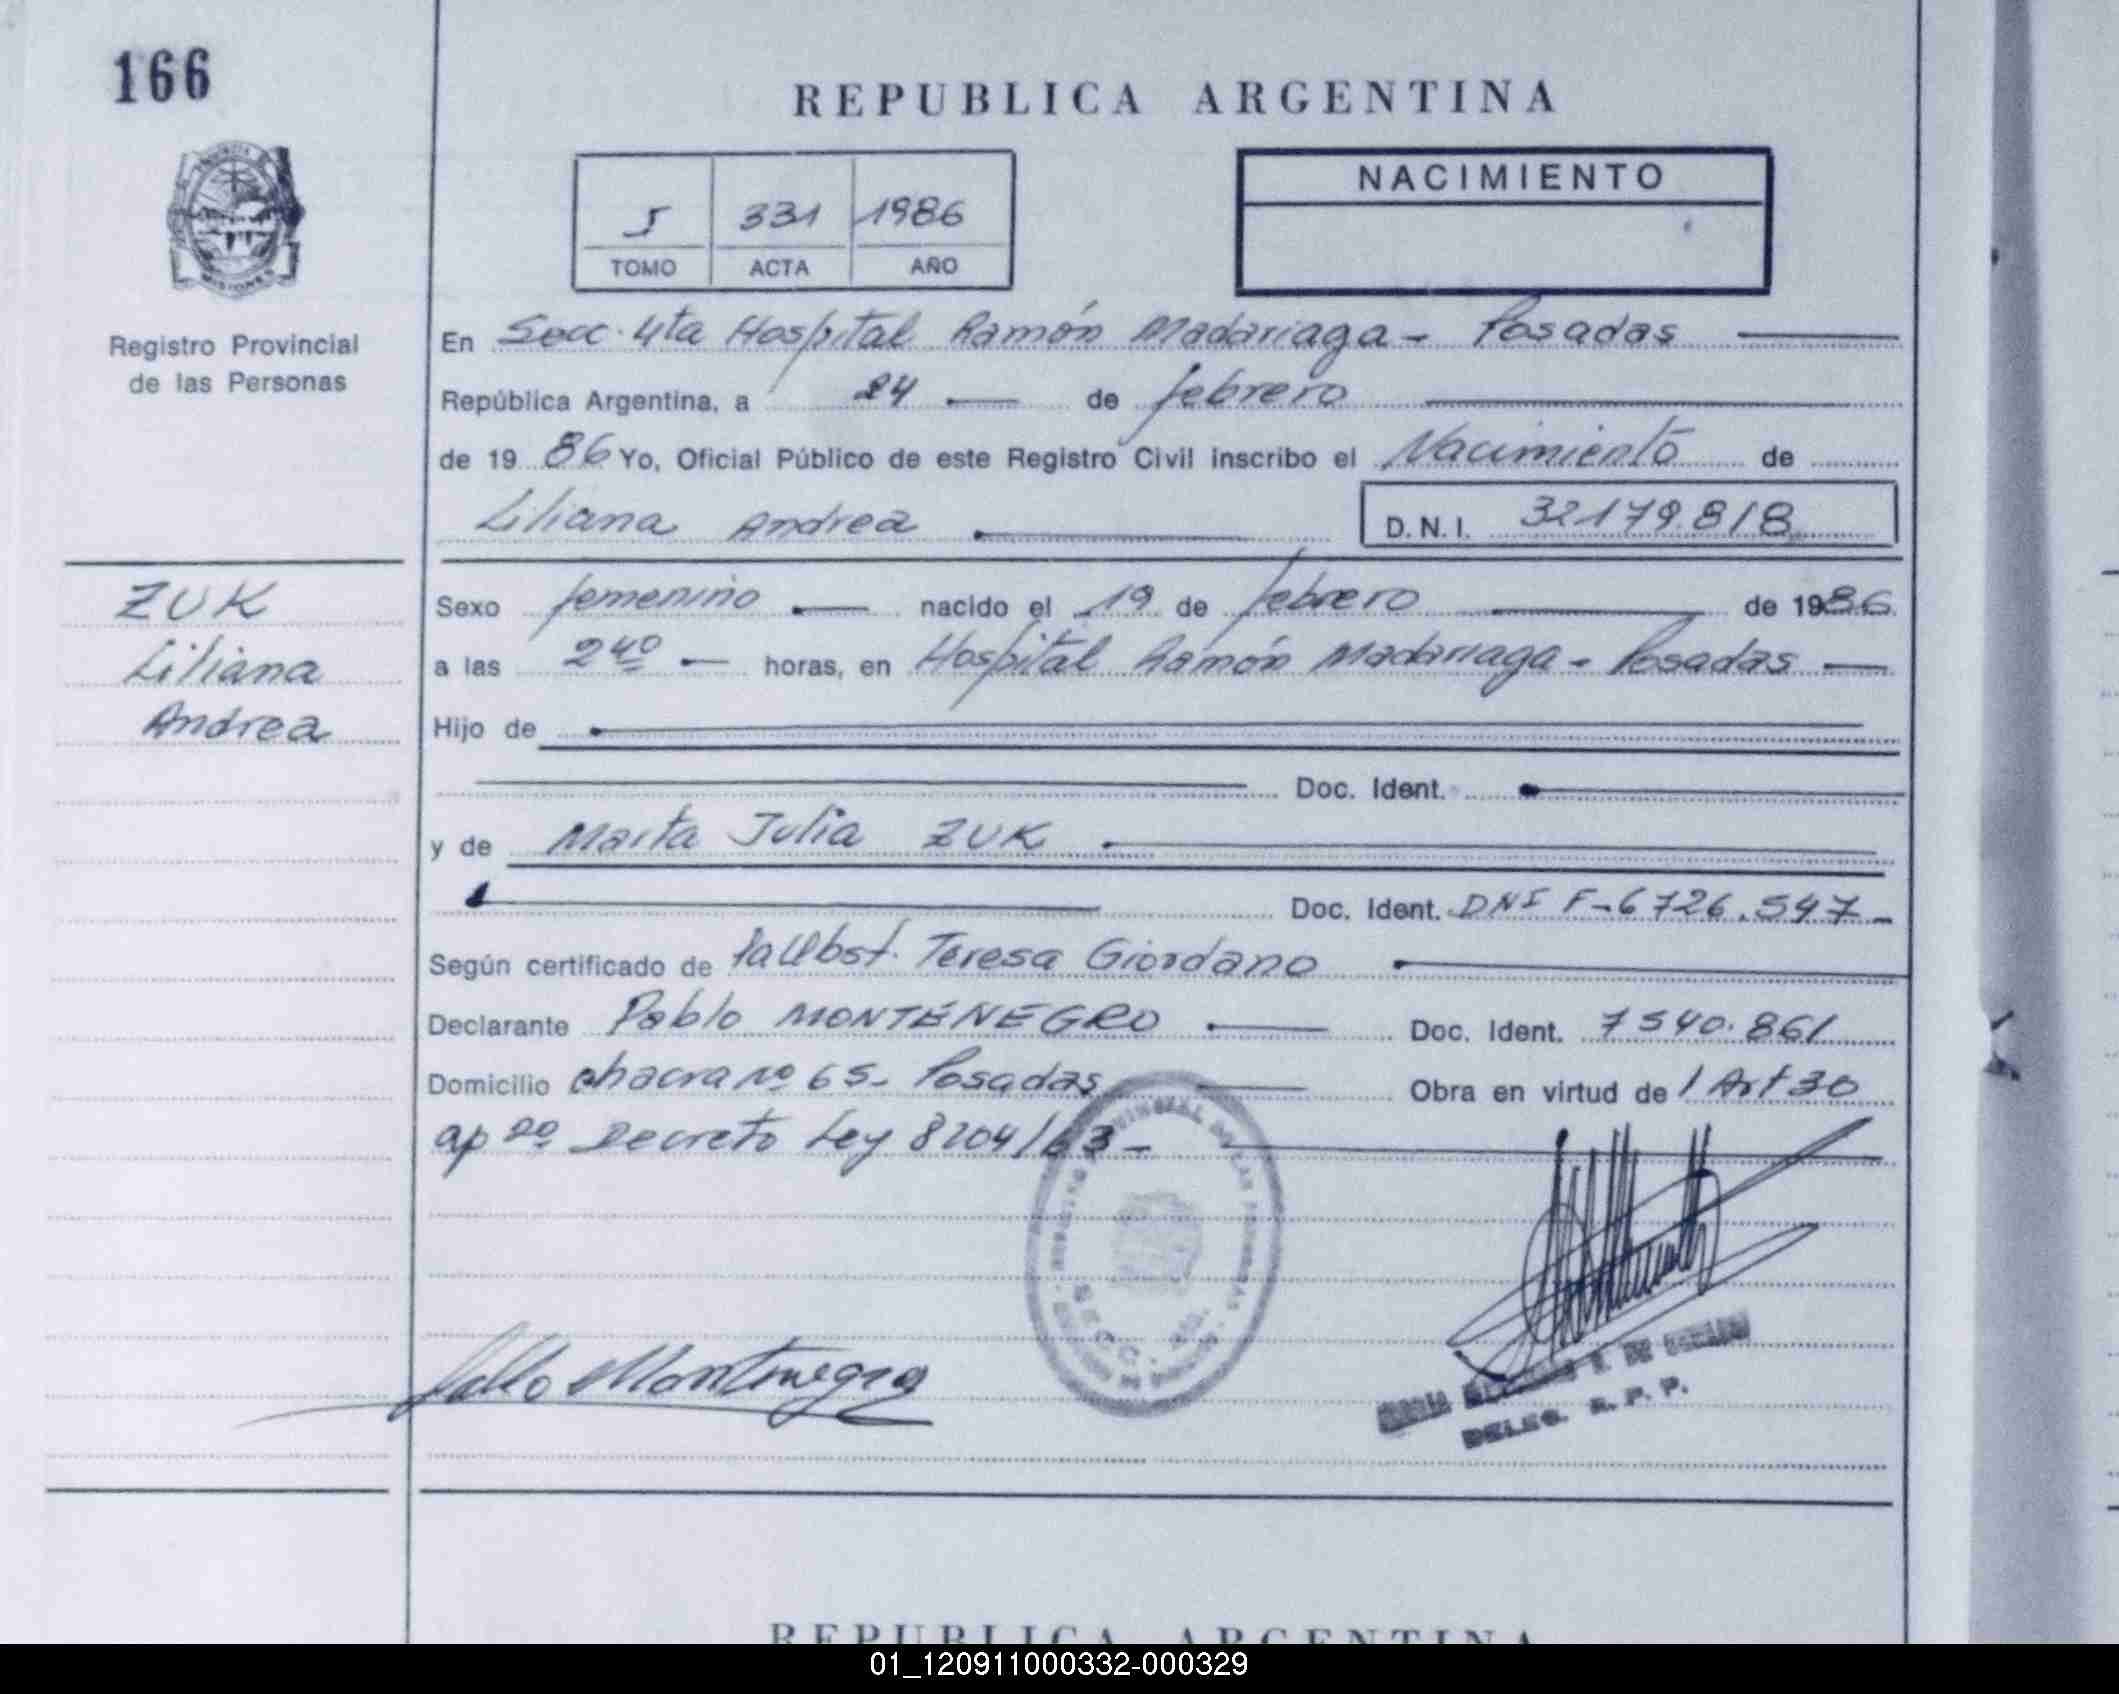 166
REPUBLICA ARGENTINA
5 331 1986
TOMO ACTA AÑO
NACIMIENTO
MISIONES
Registro Provincial
de las Personas
En Secc. 4ta Hospital Ramón Madariaga - Posadas
República Argentina, a 24 de febrero
de 1986 Yo, Oficial Público de este Registro Civil inscribo el Nacimiento de
Liliana Andrea D.N.I. 32179818
ZUK
Liliana
Andrea
Sexo femenino nacido el 19 de febrero de 1986
a las 2 40 horas, en Hospital Ramón Madariaga - Posadas
Hijo de
Doc. Ident.
y de Marta Julia ZUK
Doc. Ident. DNI F-6726.547-
Según certificado de Obst. Teresa Giordano
Declarante Pablo MONTENEGRO Doc. Ident. 7540.861
Domicilio chacra nº 65- Posadas Obra en virtud de Art 30
ap 2º Decreto Ley 8204/63-
SECC. 4ta.
Pablo Montenegro
DELEG. R. P. P.
REPUBLICA ARGENTINA
01_120911000332-000329